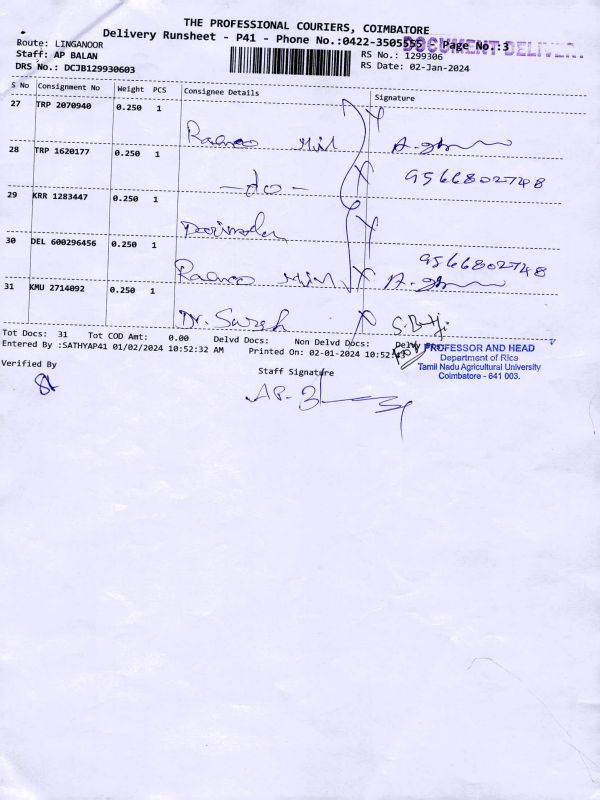 THE PROFESSIONAL COURIERS, COIMBATORE
Delivery Runsheet - P41 - Phone No.:0422-3505555 Page No.:3
DOCUMENT DELIVER
Route: LINGANOOR
RS No.: 1299306
Staff: AP BALAN
RS Date: 02-Jan-2024
DRS No.: DCJB129930603
S No Consignment No Weight PCS Consignee Details Signature
27 TRP 2070940 0.250 1
28 TRP 1620177 0.250 1
-do- 9566802748
29 KRR 1283447 0.250 1
30 DEL 600296456 0.250 1
9566802748
31 KMU 2714092 0.250 1
Dr. Sarah
Tot Docs: 31 Tot COD Amt: 0.00 Delvd Docs: Non Delvd Docs:
Entered By :SATHYAP41 01/02/2024 10:52:32 AM Printed On: 02-01-2024
PROFESSOR AND HEAD
Department of Rice
Tamil Nadu Agricultural University
Coimbatore - 641 003.
Verified By
Staff Signature